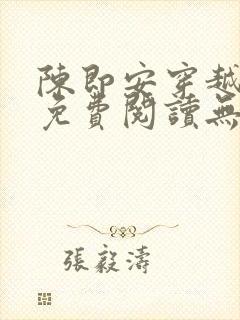 陳即安穿越
免費閱讀無
張毅濤